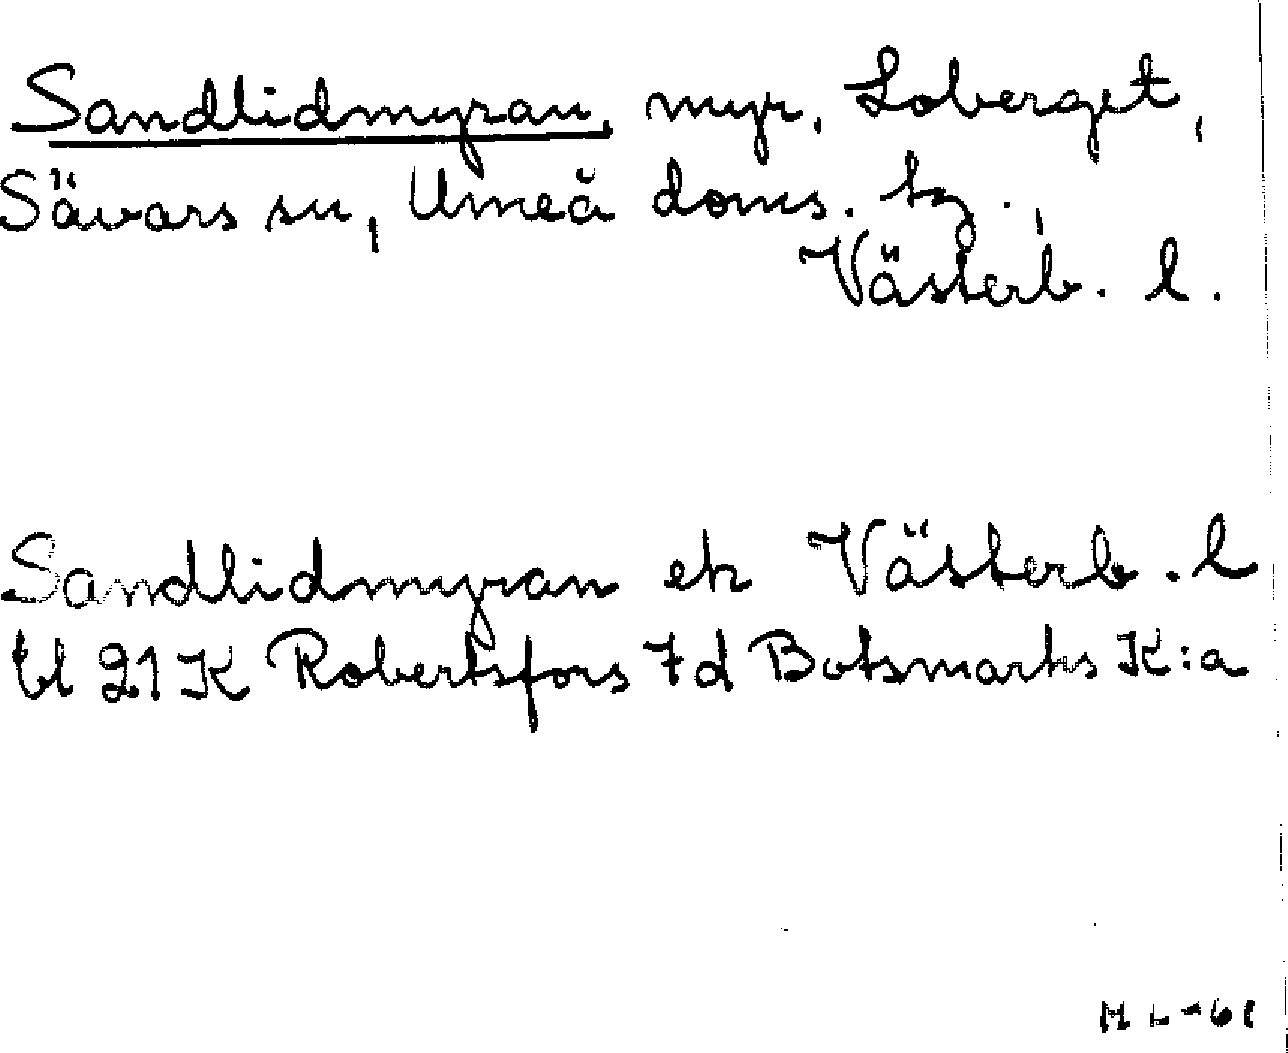 Sandlidmyran, myr, Loberget,
Sävars sn, Umeå doms. tg.,
Västerb. l.
Sandlidmyran ek Västerb. l
bl 21 K Robertsfors 7d Botsmarks K:a